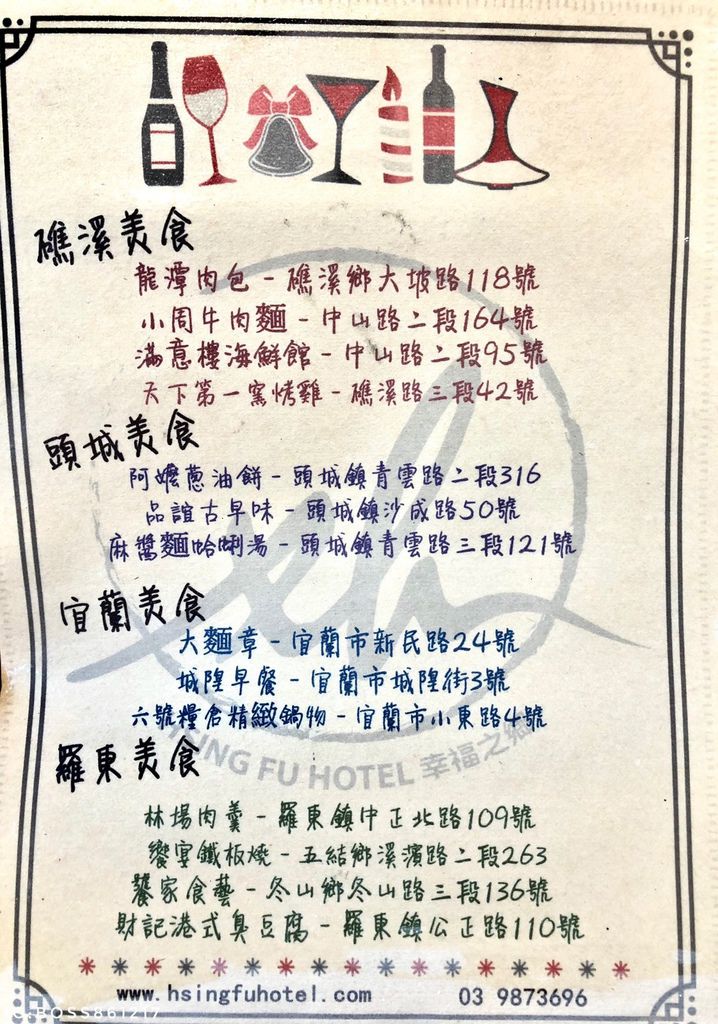 礁溪美食
龍潭肉包 - 礁溪鄉大坡路118號
小周牛肉麵 - 中山路二段164號
滿意樓海鮮館 - 中山路二段95號
天下第一窯烤雞 - 礁溪路三段42號
頭城美食
阿嬤蔥油餅 - 頭城鎮青雲路二段316
品誼古早味 - 頭城鎮沙成路50號
麻醬麵蛤蜊湯 - 頭城鎮青雲路三段121號
宜蘭美食
大麵章 - 宜蘭市新民路24號
城隍早餐 - 宜蘭市城隍街3號
六號糧倉精緻鍋物 - 宜蘭市小東路4號
HSING FU HOTEL 幸福之鄉
羅東美食
林場肉羹 - 羅東鎮中正北路109號
饗宴鐵板燒 - 五結鄉溪濱路二段263
饕家食藝 - 冬山鄉冬山路三段136號
財記港式臭豆腐 - 羅東鎮公正路110號
www.hsingfuhotel.com 03 9873696